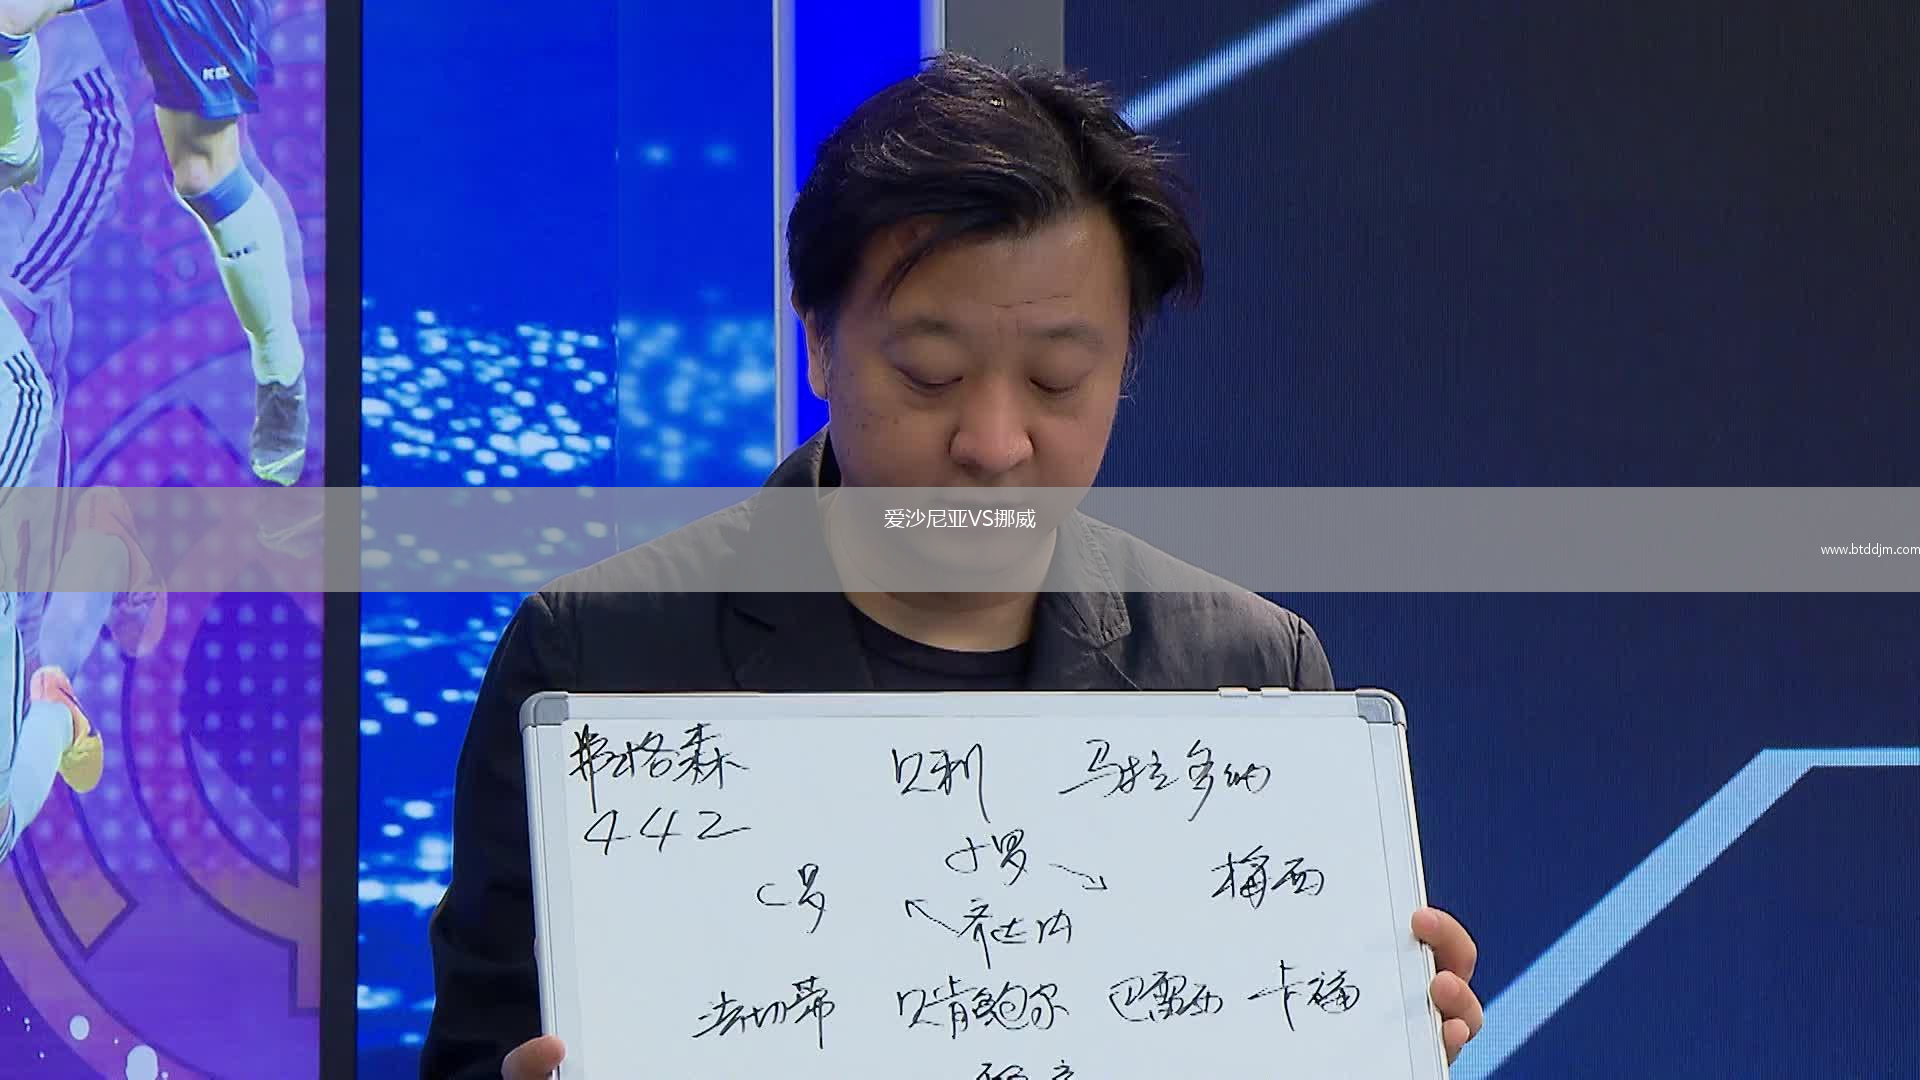 爱沙尼亚VS挪威
www.btddjm.com
弗格森 贝利 马拉多纳
442
小罗
C罗 梅西
齐达内
法切蒂 贝肯鲍尔 巴雷西 卡福